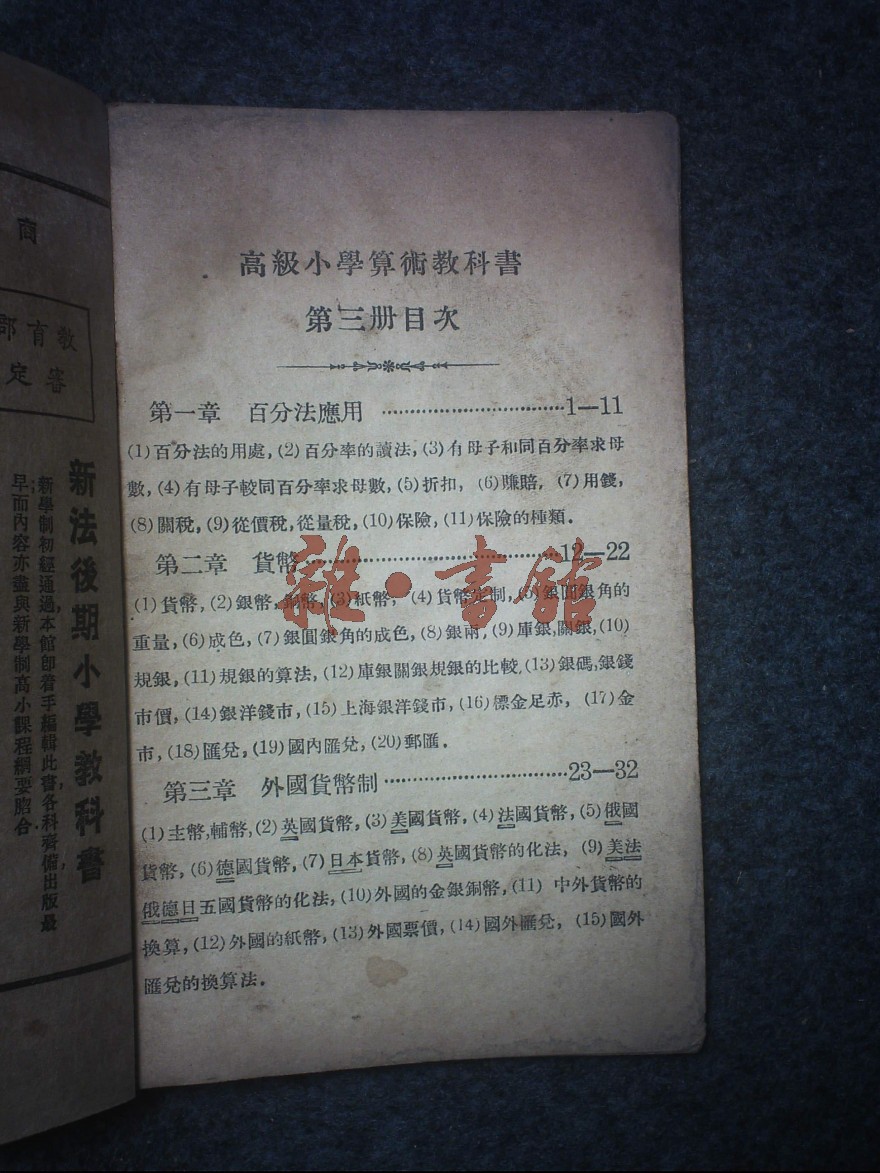 高級小學算術教科書
第三册目次
第一章 百分法應用 ……………………………1—11
(1)百分法的用處,(2)百分率的讀法,(3)有母子和同百分率求母
數,(4)有母子較同百分率求母數,(5)折扣, (6)賺賠, (7)用錢,
(8)關稅,(9)從價稅,從量稅,(10)保險,(11)保險的種類.
第二章 貨幣 ……………………………12—22
(1)貨幣,(2)銀幣,銅幣,(3)紙幣, (4)貨幣定制,(5)銀圓銀角的
重量,(6)成色,(7)銀圓銀角的成色,(8)銀兩,(9)庫銀,關銀,(10)
規銀,(11)規銀的算法,(12)庫銀關銀規銀的比較,(13)銀碼,銀錢
市價,(14)銀洋錢市,(15)上海銀洋錢市,(16)標金足赤, (17)金
市,(18)匯兌,(19)國內匯兌,(20)郵匯.
第三章 外國貨幣制 ……………………………23—32
(1)主幣,輔幣,(2)英國貨幣,(3)美國貨幣,(4)法國貨幣,(5)俄國
貨幣,(6)德國貨幣,(7)日本貨幣,(8)英國貨幣的化法, (9)美法
俄德日五國貨幣的化法,(10)外國的金銀銅幣,(11) 中外貨幣的
換算,(12)外國的紙幣,(13)外國票價,(14)國外匯兌, (15)國外
匯兌的換算法.
雜·書館
商
教育部
審定
新法後期小學教科書
新學制初經通過,本館即着手編輯此書,各科齊備,出版最
早;而內容亦盡與新學制高小課程綱要脗合.